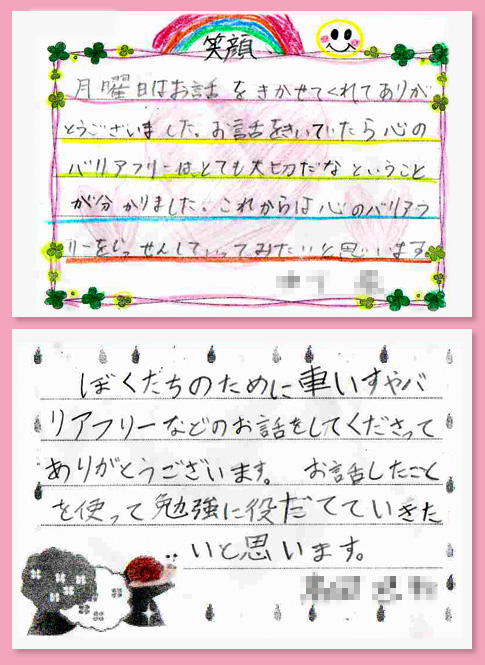 笑顔
月曜日はお話をきかせてくれてありが
とうございました。お話をきいていたら心の
バリアフリーはとても大切だなということ
が分かりました。これからは心のバリアフ
リーをじっせんしていってみたいと思います。
ぼくたちのために車いすやバ
リアフリーなどのお話をしてくださって
ありがとうございます。お話したこと
を使って勉強に役だてていきた
いと思います。